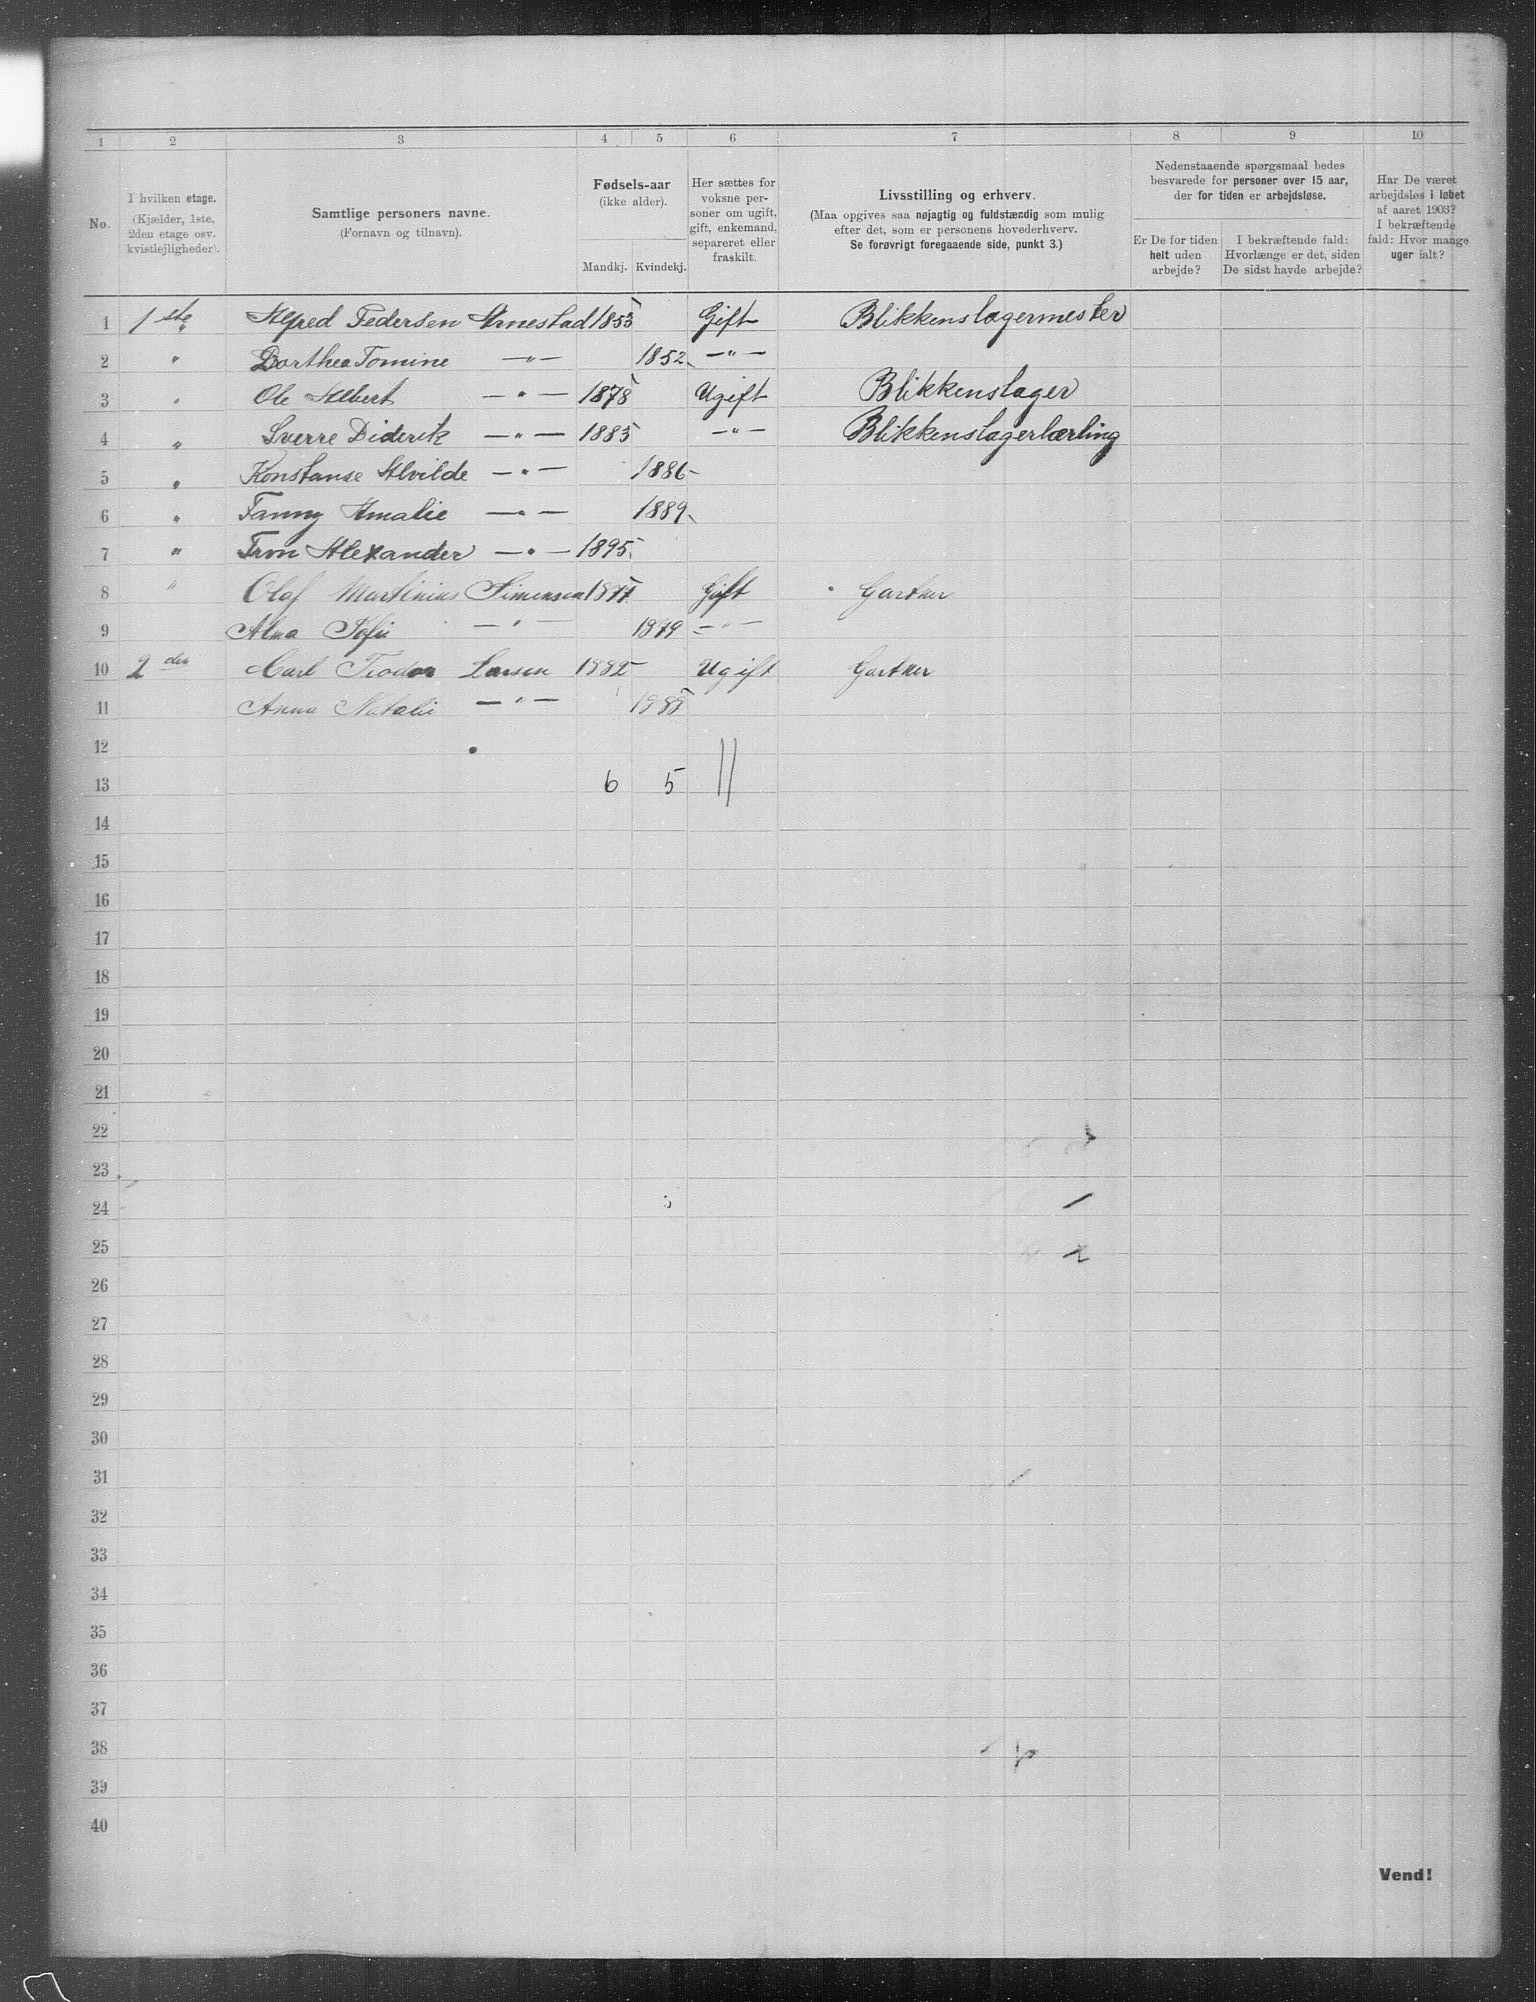 1 2 3 4 5 6 7 8 9 10
No.
I hvilken etage. (Kjælder, 1ste, 2den etage osv. kvistlejligheder).
Samtlige personers navne. (Fornavn og tilnavn).
Fødsels-aar (ikke alder). Mandkj. Kvindekj.
Her sættes for voksne personer om ugift, gift, enkemand, separeret eller fraskilt.
Livsstilling og erhverv. (Maa opgives saa nøjagtig og fuldstændig som mulig efter det, som er personens hovederhverv. Se forøvrigt foregaaende side, punkt 3.)
Nedenstaaende spørgsmaal bedes besvarede for personer over 15 aar, der for tiden er arbejdsløse.
Er De for tiden helt uden arbejde?
I bekræftende fald: Hvorlænge er det, siden De sidst havde arbejde?
Har De været arbejdsløs i løbet af aaret 1903? I bekræftende fald: Hvor mange uger ialt?
1 1ste Alfred Pedersen Arnestad 1853 Gift Blikkenslagermester
2 " Dorthea Tomine —"— 1852 —"—
3 " Ole Albert —"— 1878 Ugift Blikkenslager
4 " Sverre Diderik —"— 1885 —"— Blikkenslagerlærling
5 " Konstanse Alvilde —"— 1886
6 " Fanny Amalie —"— 1889
7 " Alexander —"— 1895
8 " Olaf Martinius Simensen Gift Gartner
9 Alma Sofie —"— 1879 —"—
10 2den Carl Teodor Larsen 1882 Ugift Gartner
11 Anna Natalie —"—
12
13 6 5 11
14
15
16
17
18
19
20
21
22
23
24
25
26
27
28
29
30
31
32
33
34
35
36
37
38
39
40
Vend!